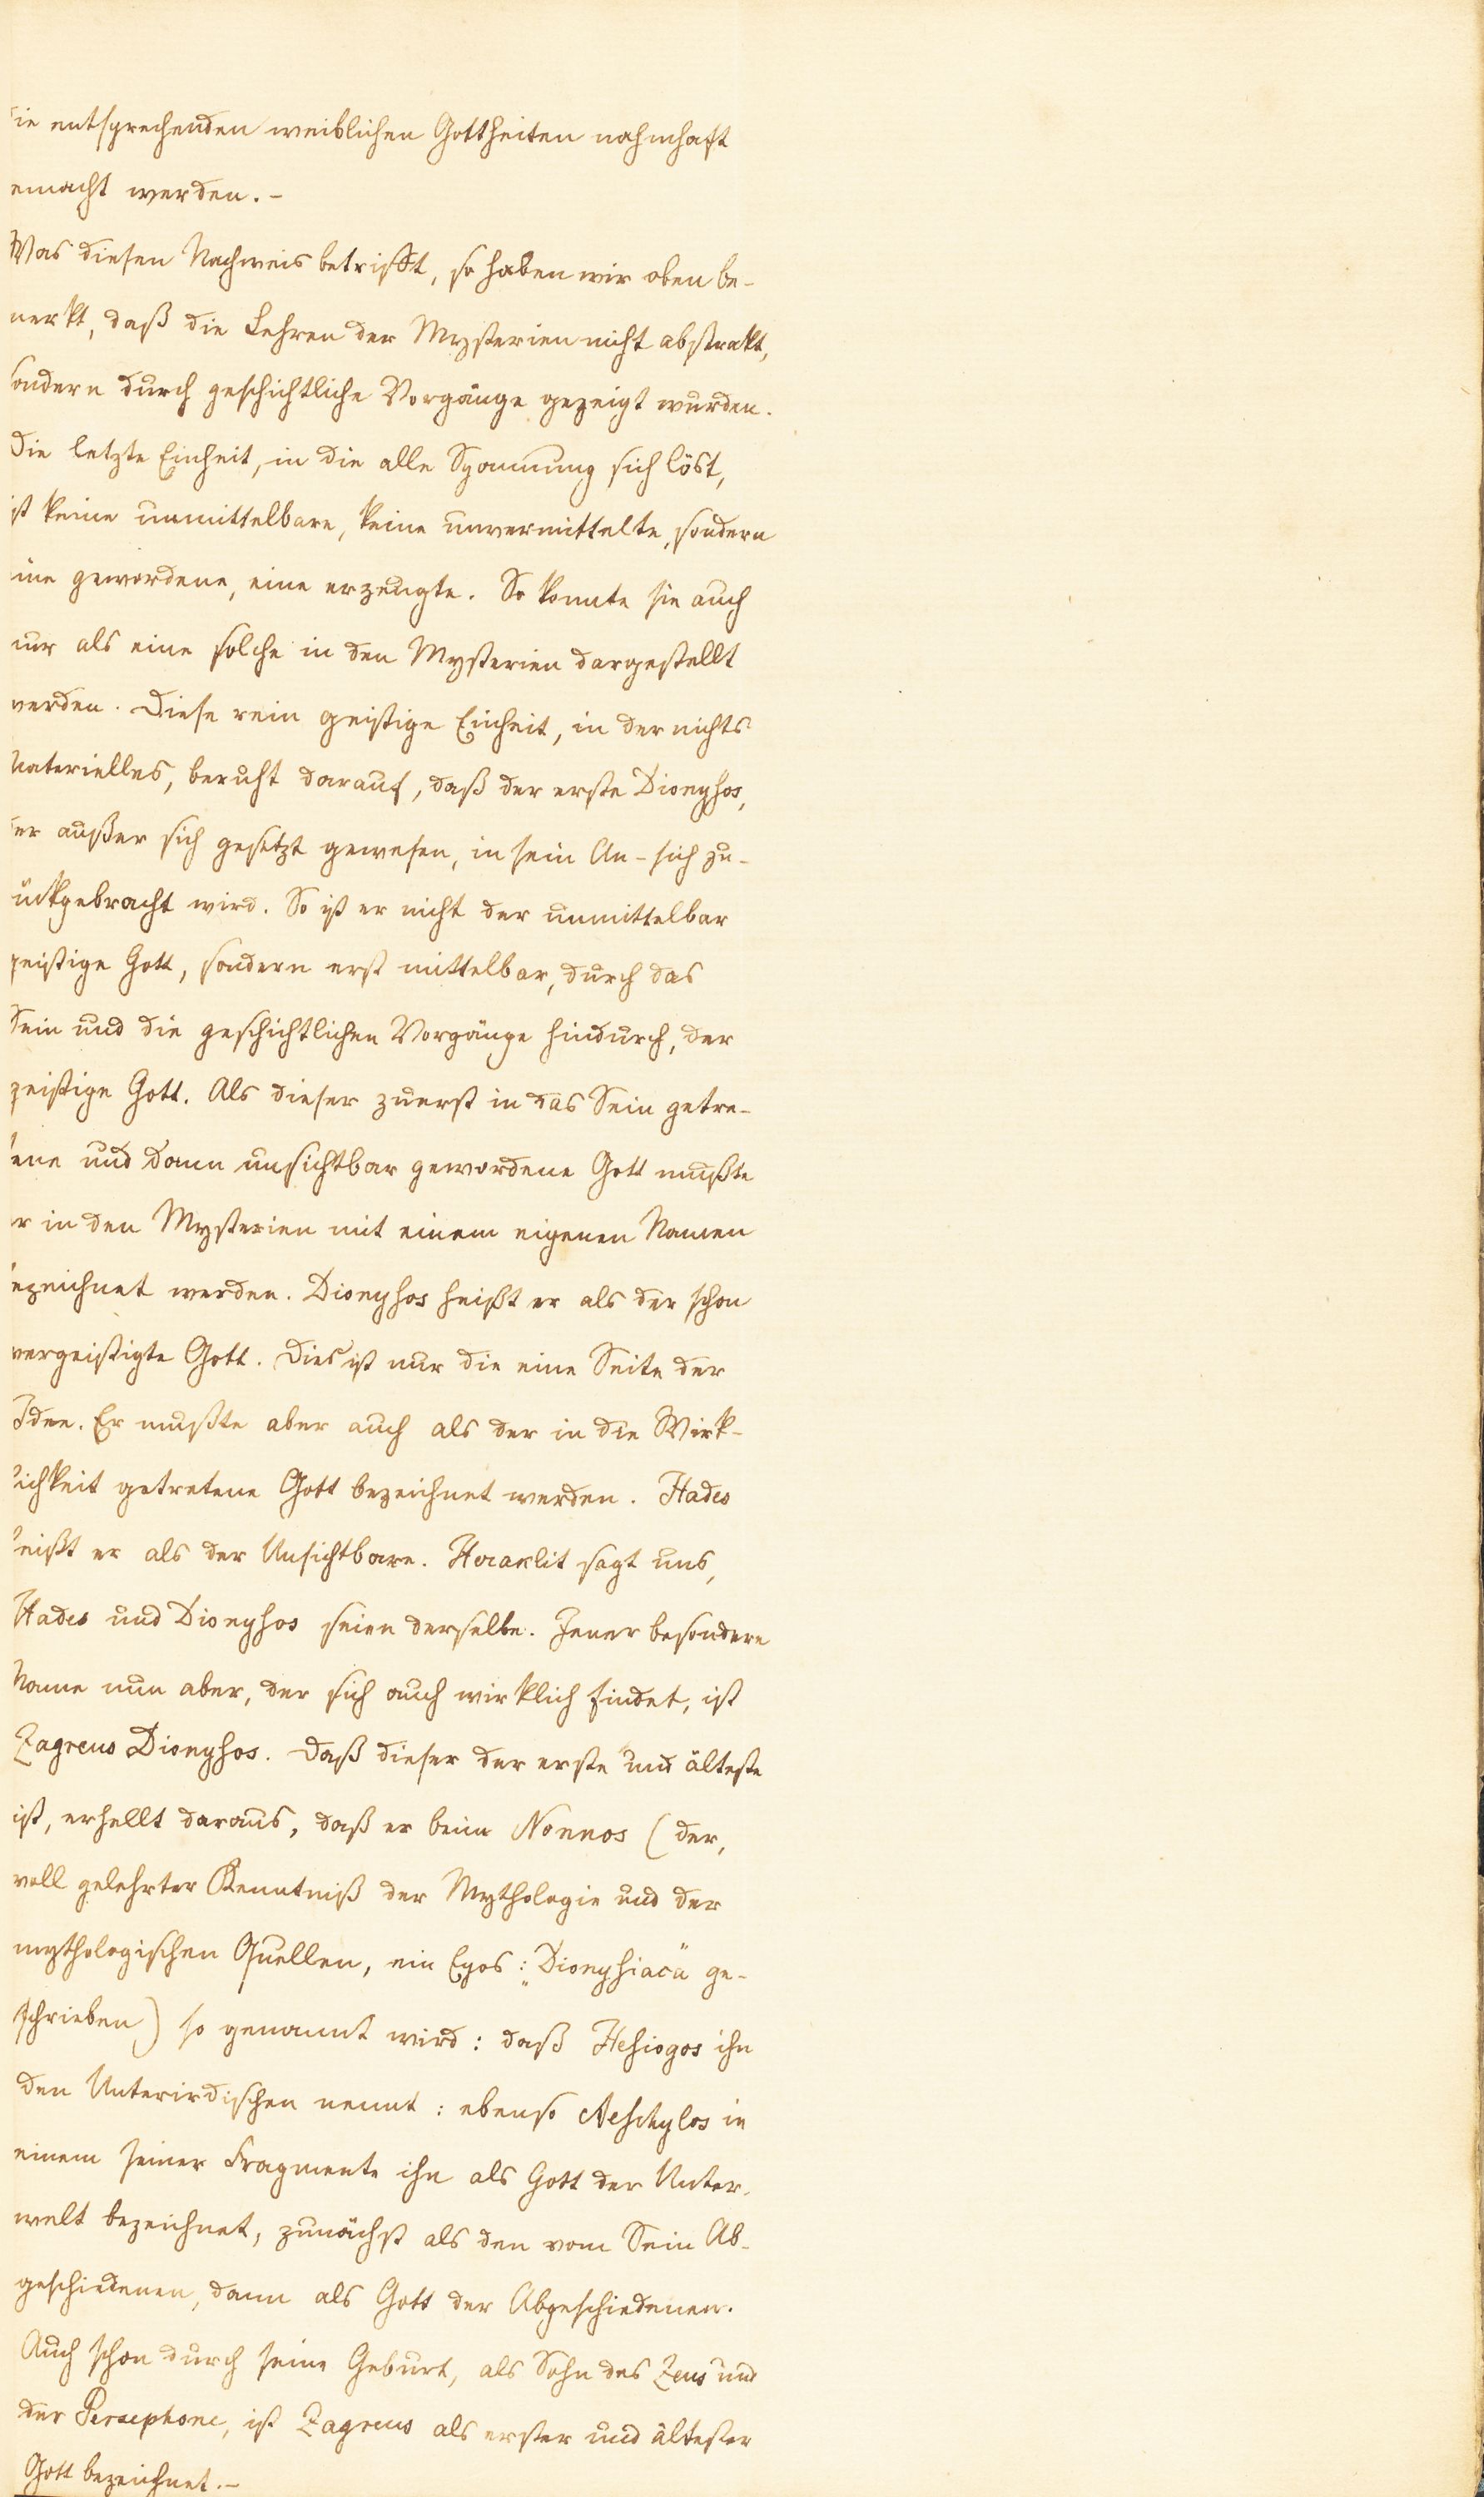 die entsprechenden weiblichen Gottheiten nahmhaft
emacht werden. –
Was diesen Nachweis betrifft, so haben wir oben be-
merkt, daß die Lehren der Mysterien nicht abstrakt,
sondern durch geschichtliche Vorgänge gezeigt wurden.
Die letzte Einheit, in die alle Spannung sich löst,
ist keine unmittelbare, keine unvermittelte, sondern
ine gewordene, eine erzeugte. So konnte sie auch
nur als eine solche in den Mysterien dargestellt
werden. Diese rein geistige Einheit, in der nichts
Materielles, beruht darauf, daß der erste Dionysos,
der außer sich gesetzt gewesen, in sein An-sich zu-
ückgebracht wird. So ist er nicht der unmittelbar
geistige Gott, sondern erst mittelbar, durch das
Sein und die geschichtlichen Vorgänge hindurch, der
geistige Gott. Als dieser zuerst in das Sein getre-
tene und dann unsichtbar gewordene Gott mußte
r in den Mysterien mit einem eigenen Namen
bezeichnet werden. Dionysos heißt er als der schon
vergeistigte Gott. Dies ist nur die eine Seite der
Idee. Er mußte aber auch als der in die Wirk-
lichkeit getretene Gott bezeichnet werden. Hades
heißt er als der Unsichtbare. Heraklit sagt uns,
Hades und Dionysos seien derselbe. Jener besondere
Name nun aber, der sich auch wirklich findet, ist
Zagreus Dionysos. Daß dieser der erste und älteste
ist, erhellt daraus, daß er beim Nonnos (der,
voll gelehrter Kenntniß der Mythologie und der
mythologischen Quellen, ein Epos: „Dionysiaca" ge-
schrieben) so genannt wird: daß Hesiogos ihn
den Unterirdischen nennt: ebenso Aeschylos in
einem seiner Fragmente ihn als Gott der Unter-
welt bezeichnet, zunächst als den vom Sein Ab-
geschiedenen, dann als Gott der Abgeschiedenen.
Auch schon durch seine Geburt, als Sohn des Zeus und
der Persephone, ist Zagreus als erster und ältester
Gott bezeichnet. –